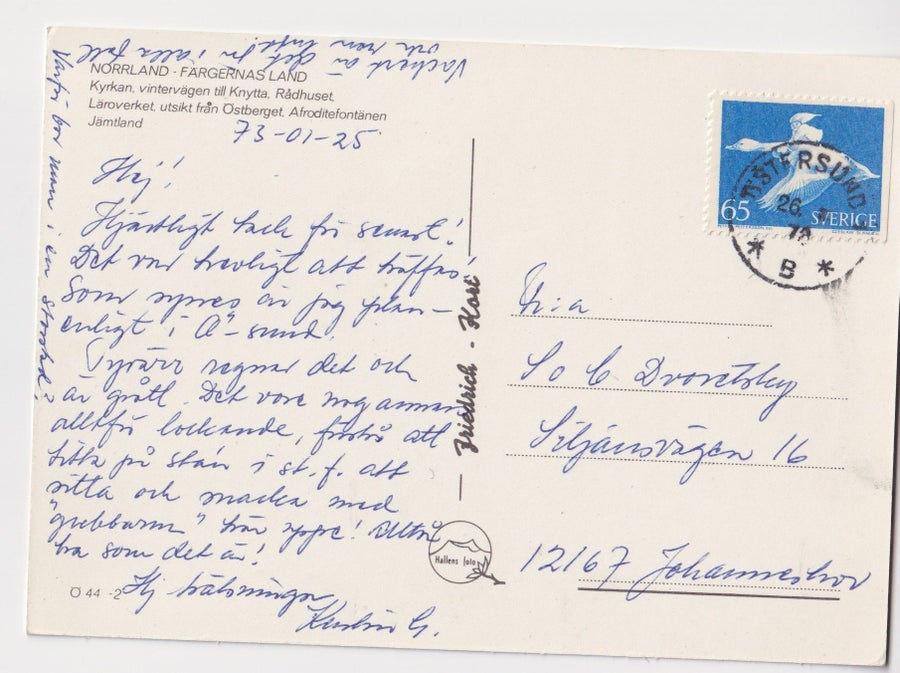 NORRLAND - FÄRGERNAS LAND
Kyrkan, vintervägen till Knytta, Rådhuset,
Läroverket, utsikt från Östberget, Afroditefontänen
Jämtland
73-01-25
Hej!
Hjärtligt tack för senast!
Det var trevligt att träffas!
Som synes är jag plan-
enligt i Ö-sund.
Tyvärr regnar det och
är grått. Det vore nog annars
alltför lockande, förstå att
titta på stan i st. f. att
sitta och snacka med
"gubbarna" här uppe! Alltså
bra som det är!
Hj hälsningar
G.
Varför bor man i en storstad?
Vackert är det ju i alla fall
och ren luft!
Ö 44 -2
Friedrich - Kort
Hallens foto
65
SVERIGE
ÖSTERSUND
26.
B
S o C Dvoretsky
Siljansvägen 16
12167 Johanneshov